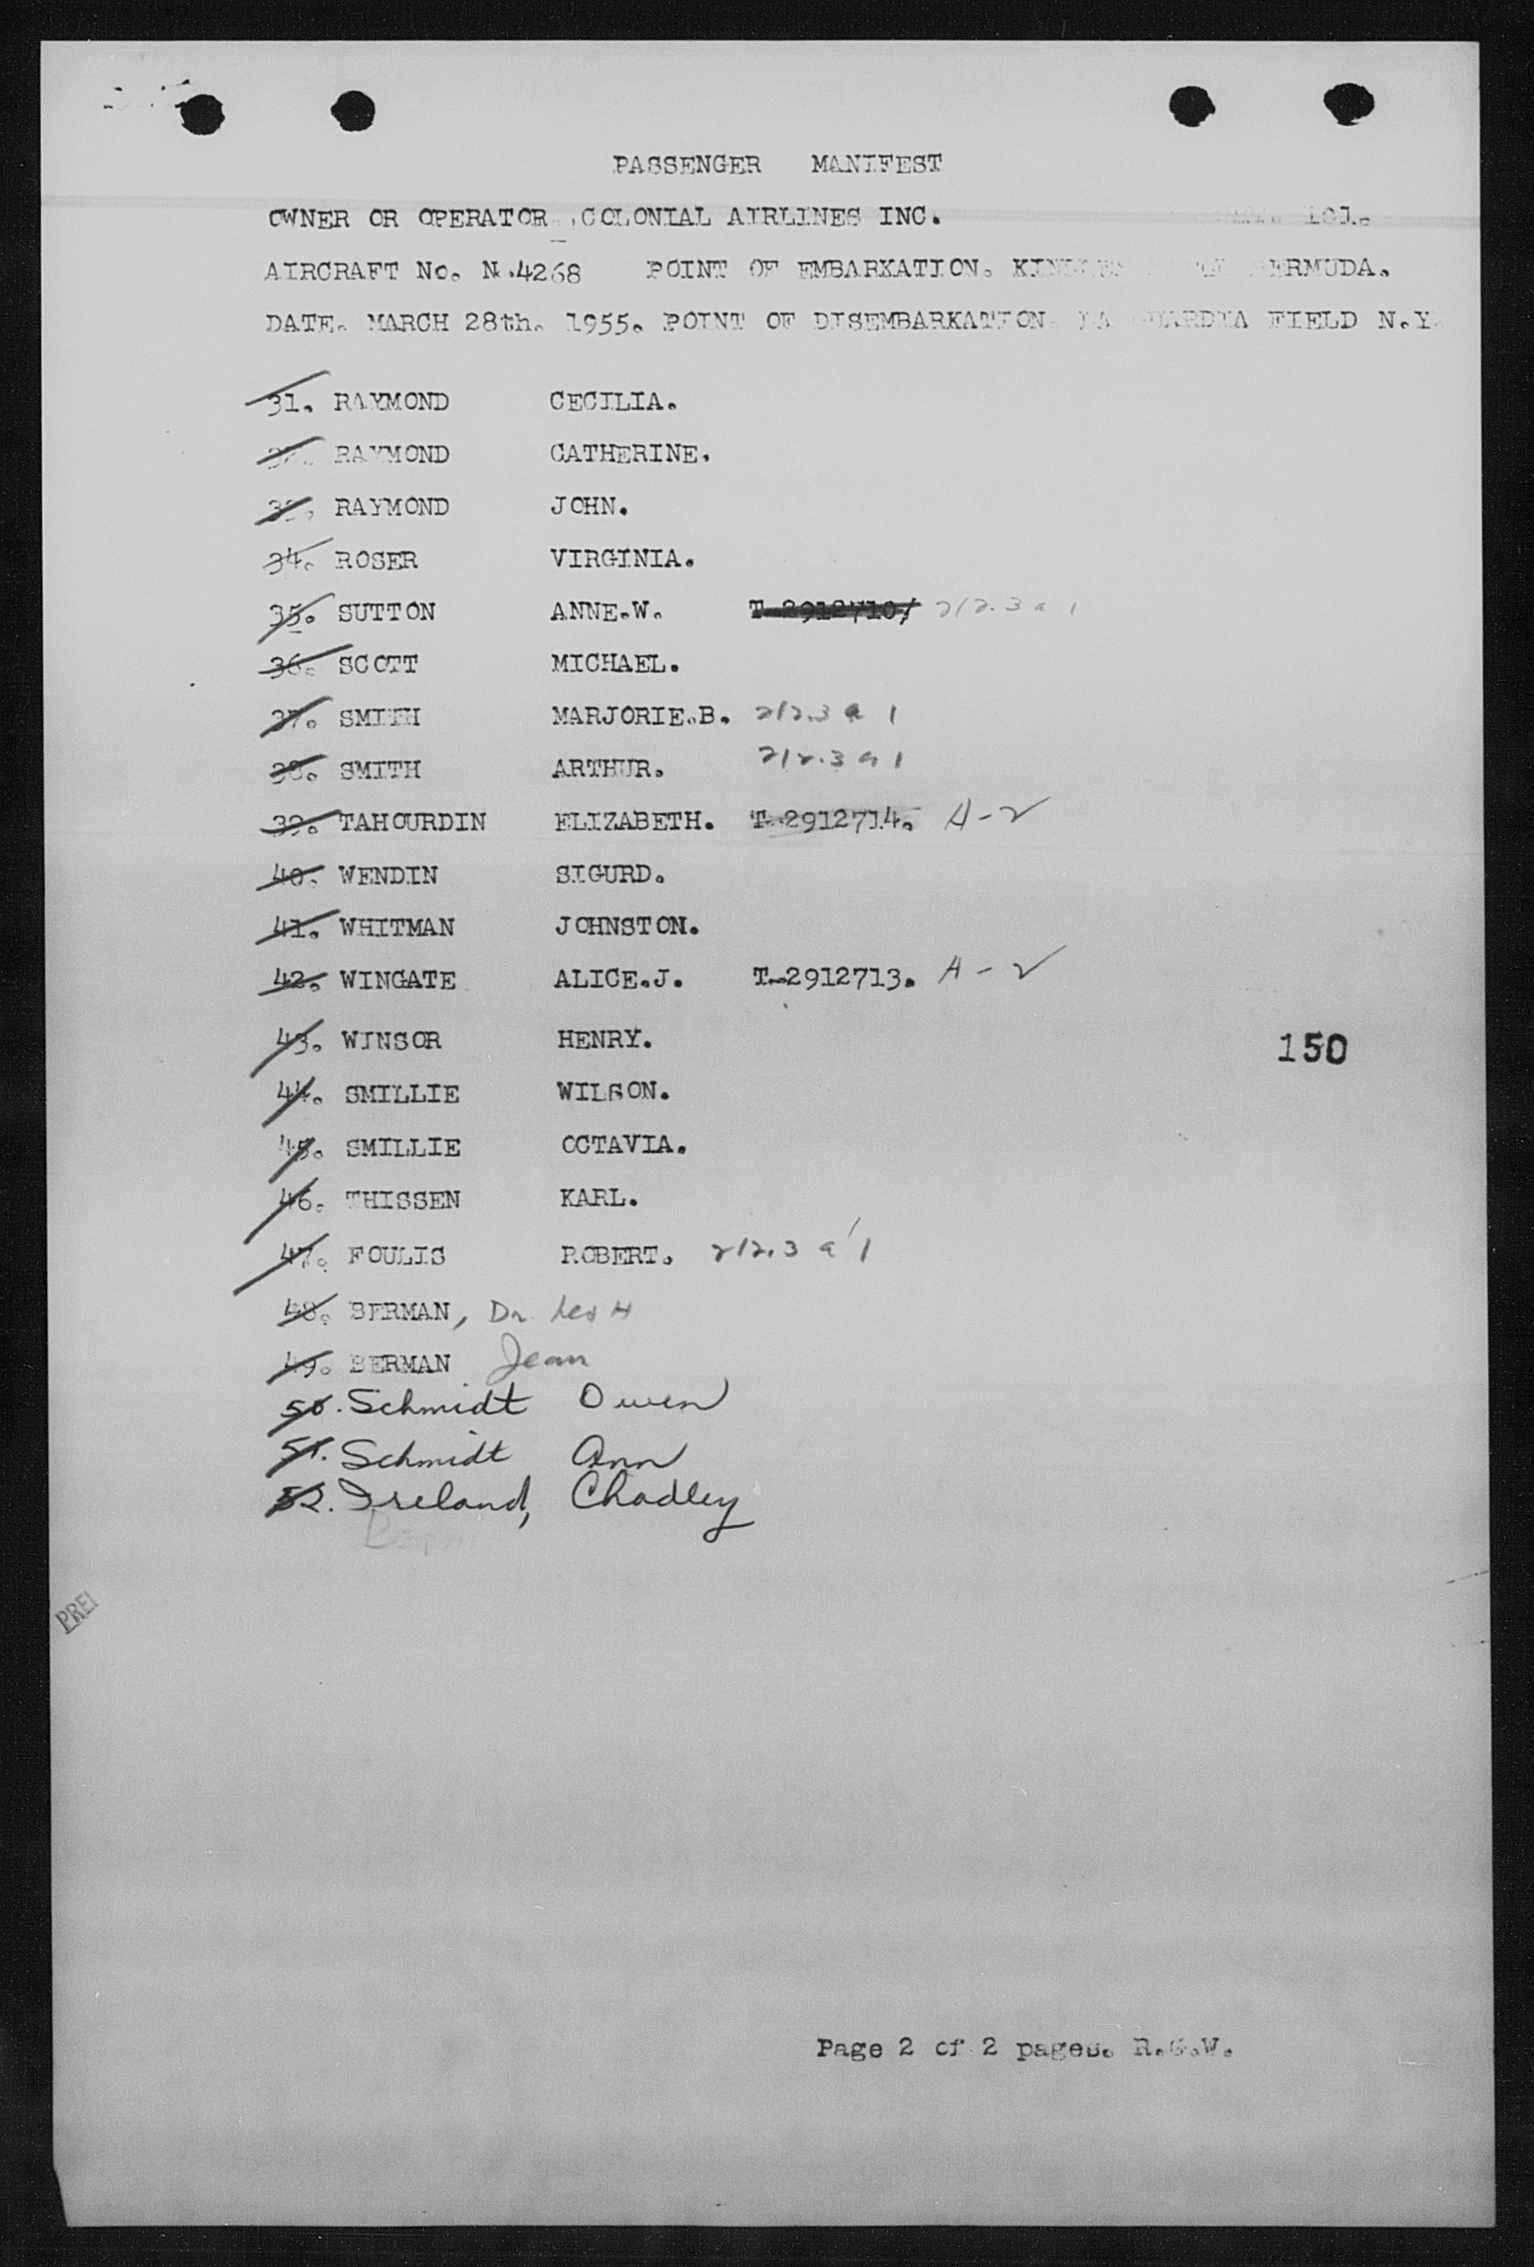 PASSENGER MANIFEST
OWNER OR OPERATOR. COLONIAL AIRLINES INC. 101.
AIRCRAFT No. N.4268 POINT OF EMBARKATION. BERMUDA.
DATE. MARCH 28th. 1955. POINT OF DISEMBARKATION. LA GUARDIA FIELD N.Y.
31. RAYMOND CECILIA.
32. RAYMOND CATHERINE.
33. RAYMOND JOHN.
34. ROSER VIRGINIA.
35. SUTTON ANNE.W. T-2912710/ 212.3 a 1
36. SCOTT MICHAEL.
37. SMITH MARJORIE.B. 212.3 a 1
38. SMITH ARTHUR. 212.3 a 1
39. TAHOURDIN ELIZABETH. T-2912714. A-2
40. WENDIN SIGURD.
41. WHITMAN JOHNSTON.
42. WINGATE ALICE.J. T-2912713. A-2
43. WINSOR HENRY.
150
44. SMILLIE WILSON.
45. SMILLIE OCTAVIA.
46. THISSEN KARL.
47. FOULIS ROBERT. 212.3 a 1
48. BERMAN, Dr. Leo H
49. BERMAN Jean
50. Schmidt Owen
51. Schmidt Ann
52. Ireland, Chadley
PREI
Page 2 of 2 pages. R.G.W.